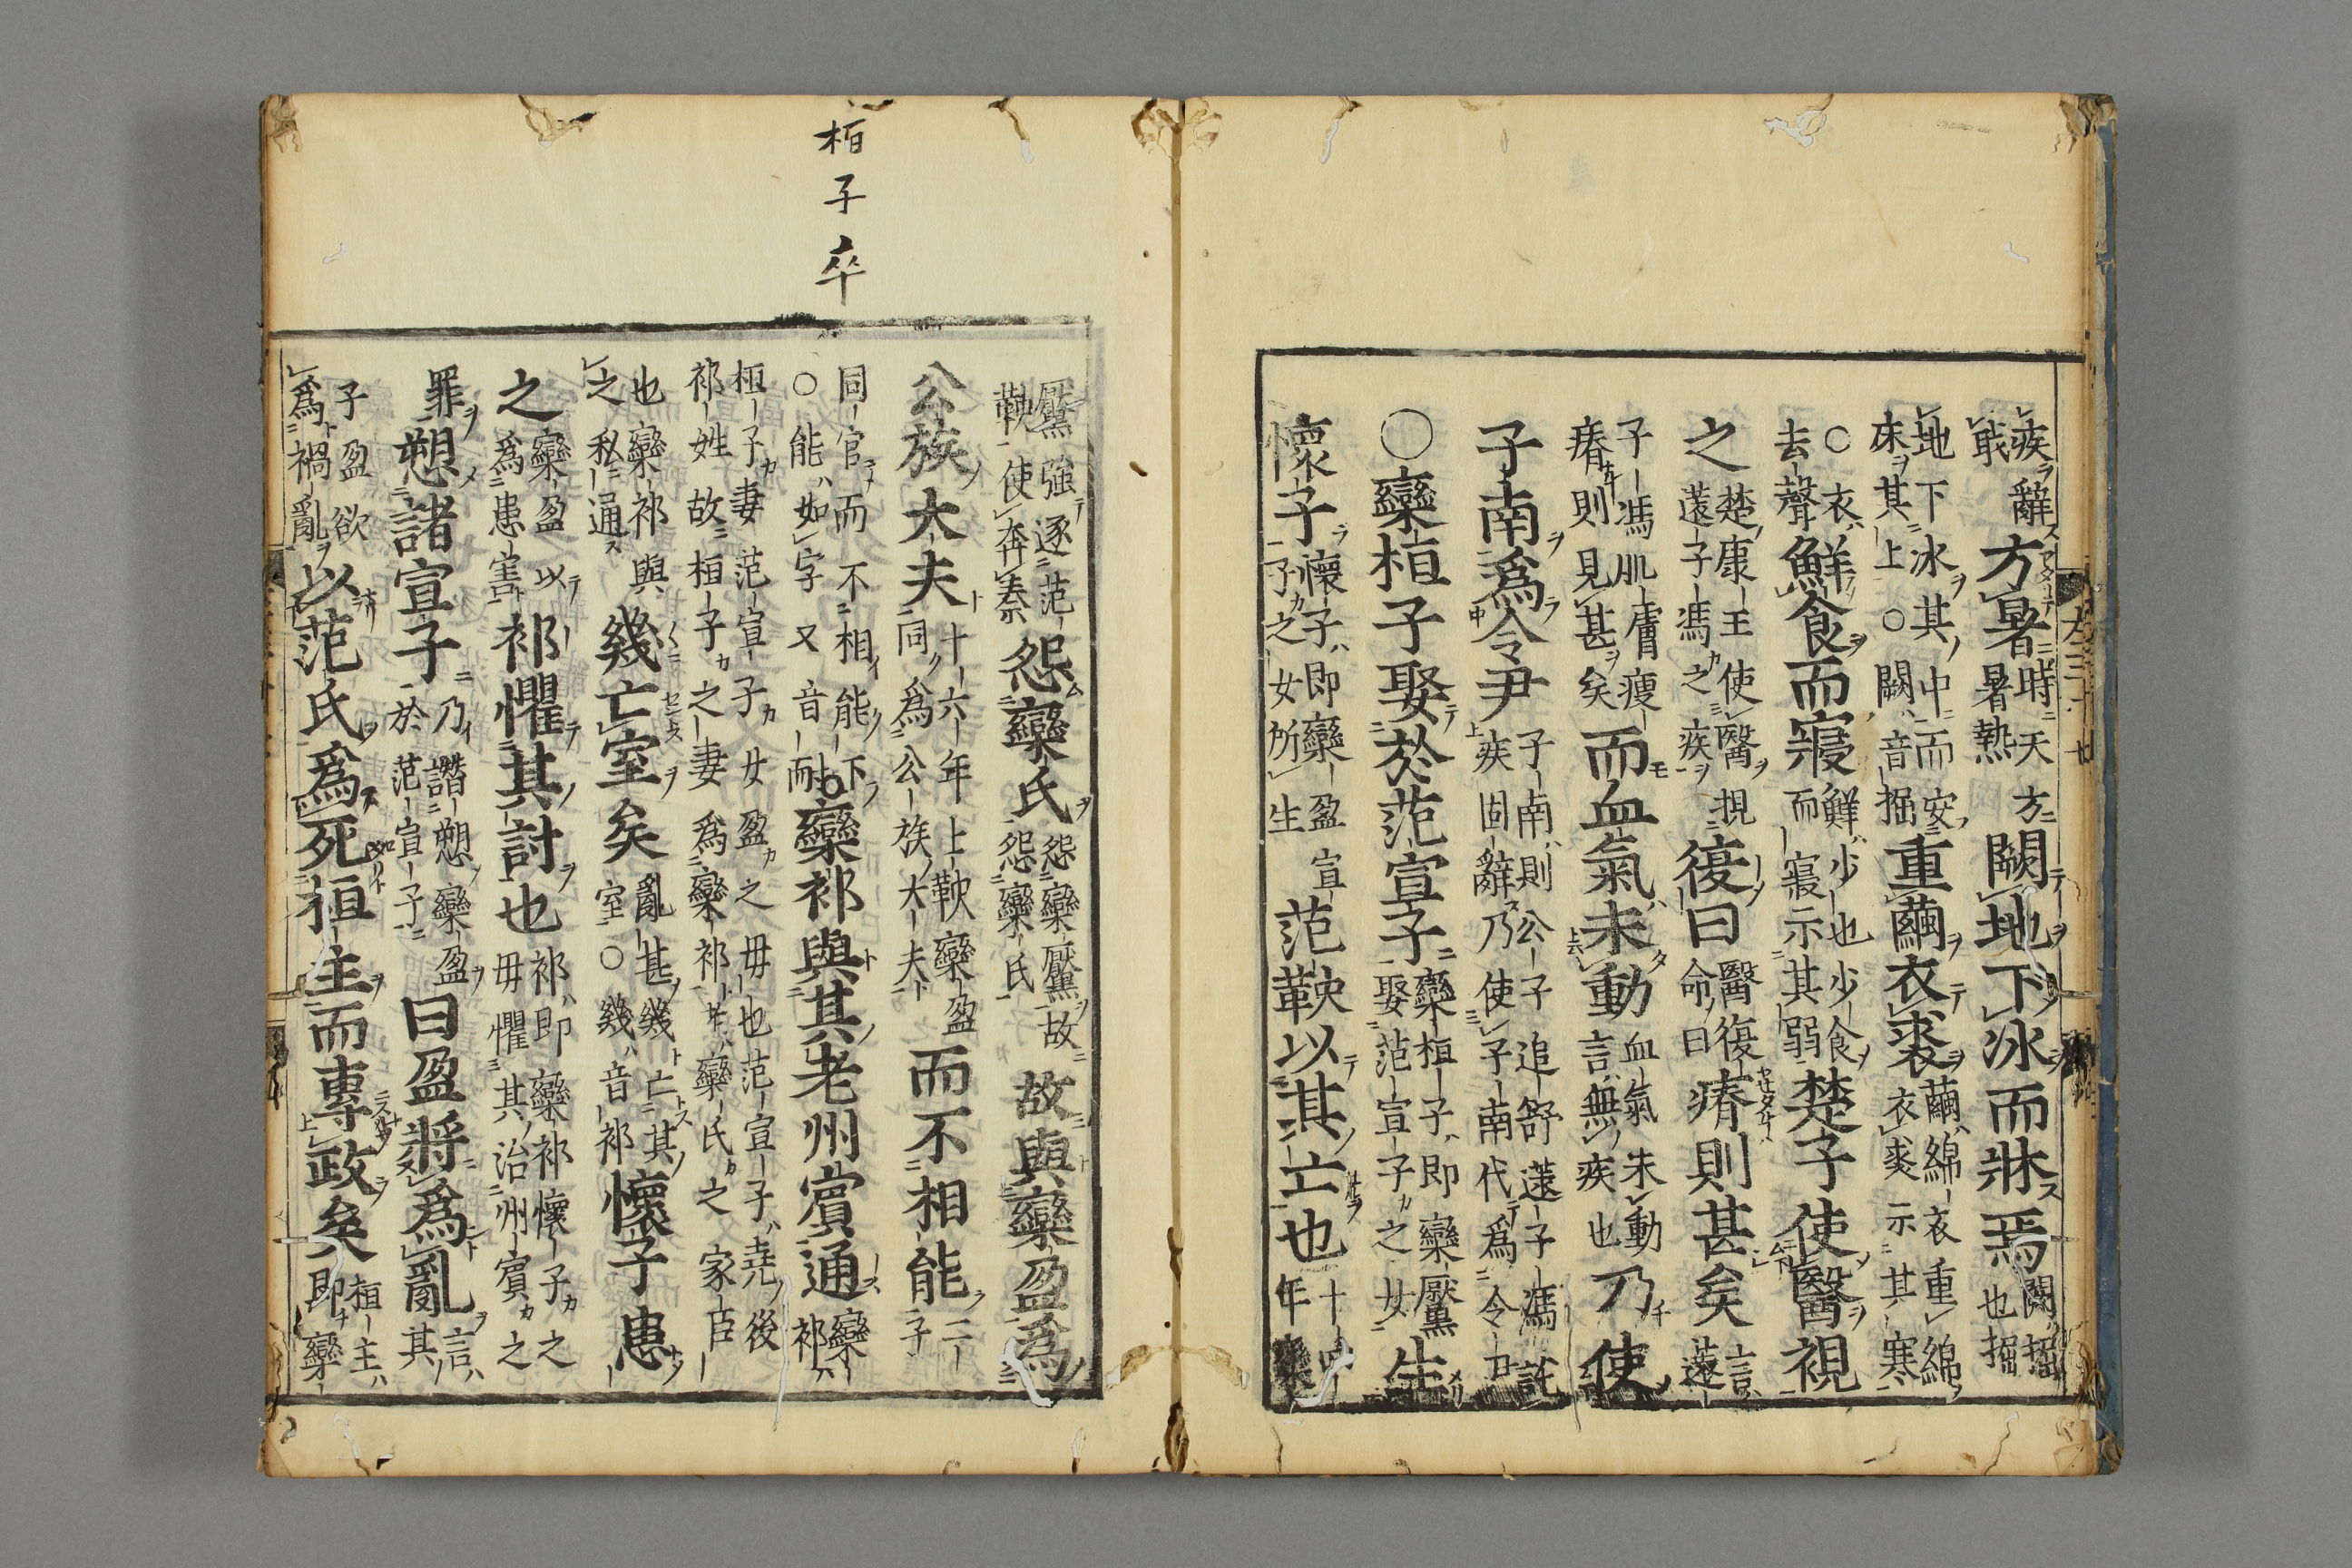 疾辭方暑時天方闕地下冰而牀焉闕掘
戢暑熱也掘
地下冰其中而安重繭衣裘繭綿衣重綿
床其上○闕音掘衣裘示其寒
○衣鮮食而寢鮮少也少食楚子使醫視
去聲而寢示其弱
之楚康王使醫視復曰醫復瘠則甚矣言
薳子馮之疾命曰薳
子馮肌膚瘦而血氣未動血氣未動乃使
瘠則見甚矣言無疾也
子南爲令尹子南則公子追舒薳子馮託
疾固辭乃使子南代爲令尹
○欒桓子娶於范宣子欒桓子即欒黶生
娶范宣子之女
懷子懷子即欒盈宣范鞅以其亡也十四
子之女所生年欒
黶強逐范怨欒氏怨欒黶故故與欒盈爲
鞅使奔秦怨欒氏
公族大夫十六年上鞅欒盈而不相能二
同爲公族大夫子
同官而不相能下欒祁與其老州賓通欒
○能如字又音耐祁
桓子妻范宣子女盈之毋也范宣子堯後
祁姓故桓子之妻爲欒祁欒氏之家臣
也欒祁與幾亡室矣亂甚幾亡其懷子患
之私通室○幾音祁
之欒盈以祁懼其討也祁即欒祁懷子之
爲患害毋懼其治州賓之
罪愬諸宣子乃譖愬欒盈曰盈將爲亂言
於范宣子其
子盈欲以范氏爲死桓主而專政矣桓主
爲禍亂即欒
栢子卒